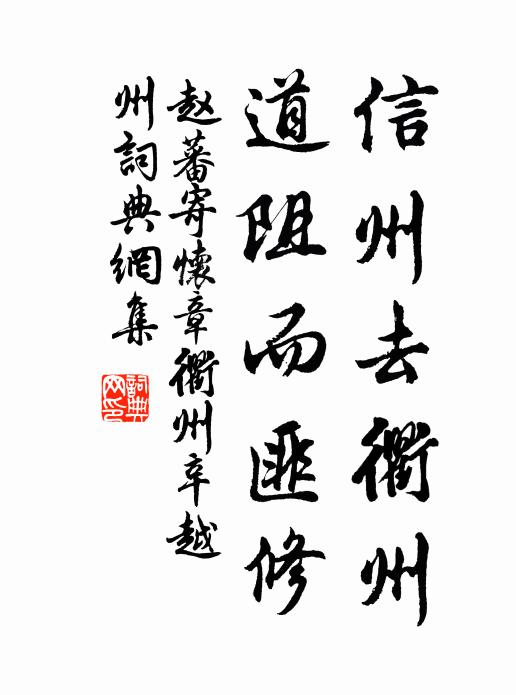 信州去衢州
道阻而匪修
赵蕃寄懷章衢州卒越
州詞典網集
詞典网印